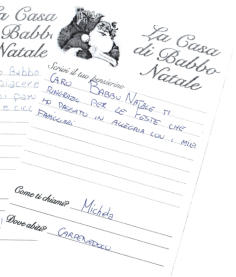 La Casa
di Babbo
Natale
Scrivi il tuo pensierino
CARO BABBO NATALE TI
RINGRAZIO PER LE FESTE CHE
HO PASSATO IN ALLEGRIA CON I MIEI
FAMILIARI
Come ti chiami? Michela
Dove abiti? CARPENEDOLO
La Casa
Babbo
Natale
Babbo